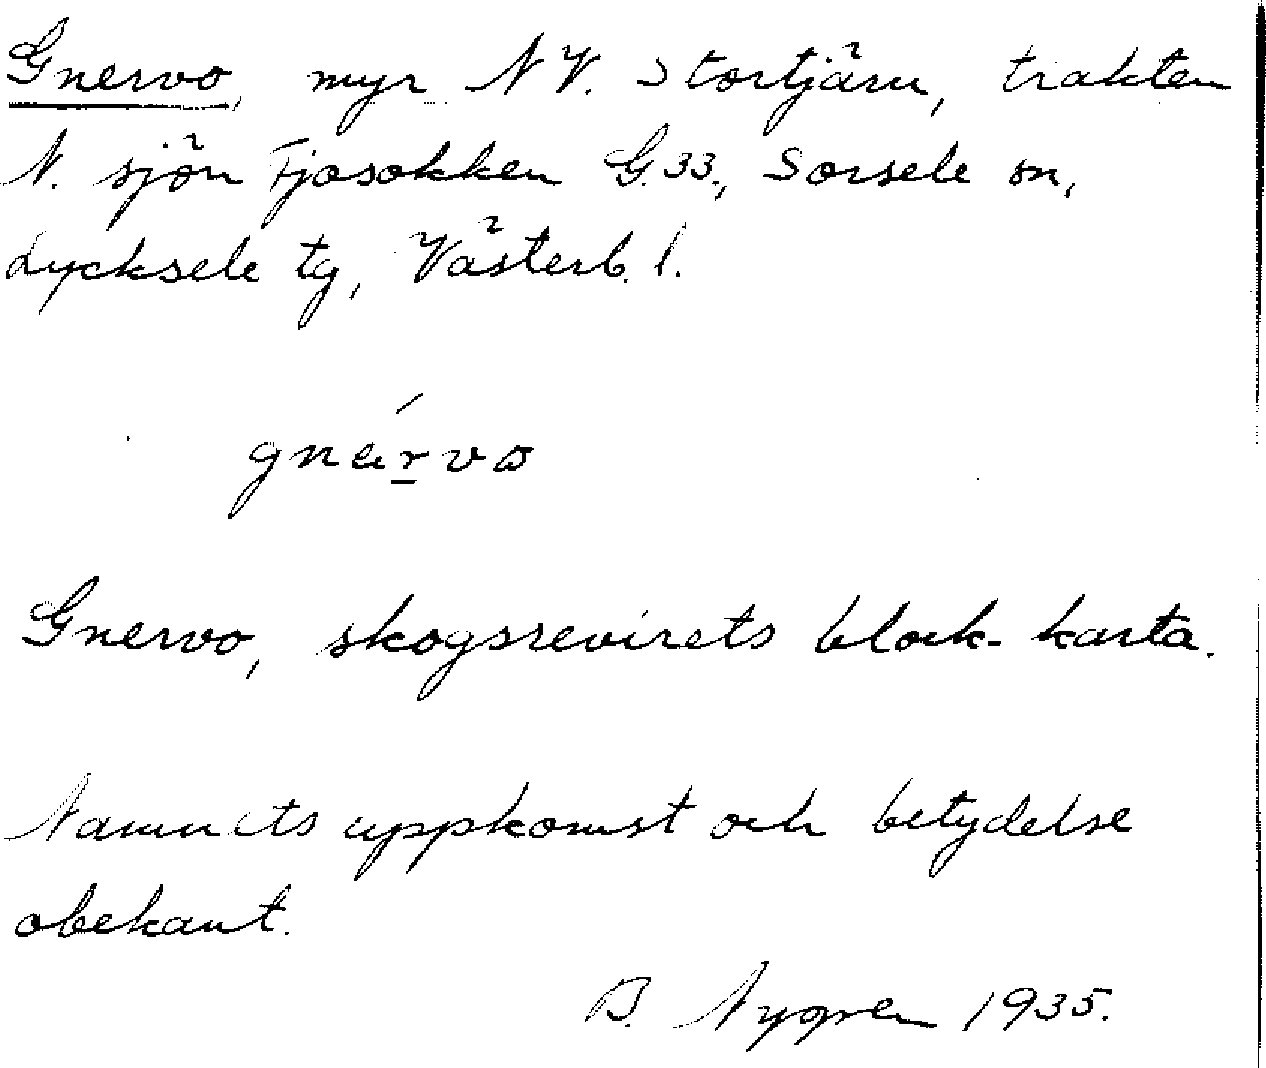 Gnervo, myr NV. Stortjärn, trakten
N. sjön Fjosokken G.33., Sorsele sn,
Lycksele tg, Västerb. l.
Gnervo, skogsrevirets block-karta.
Namnets uppkomst och betydelse
obekant.
B. Nygren 1935.